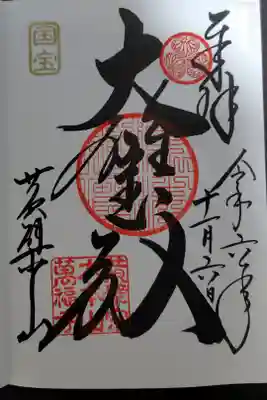 奉拝
令和六年
十一月六日
国宝
大雄宝殿
黄檗山
萬福寺